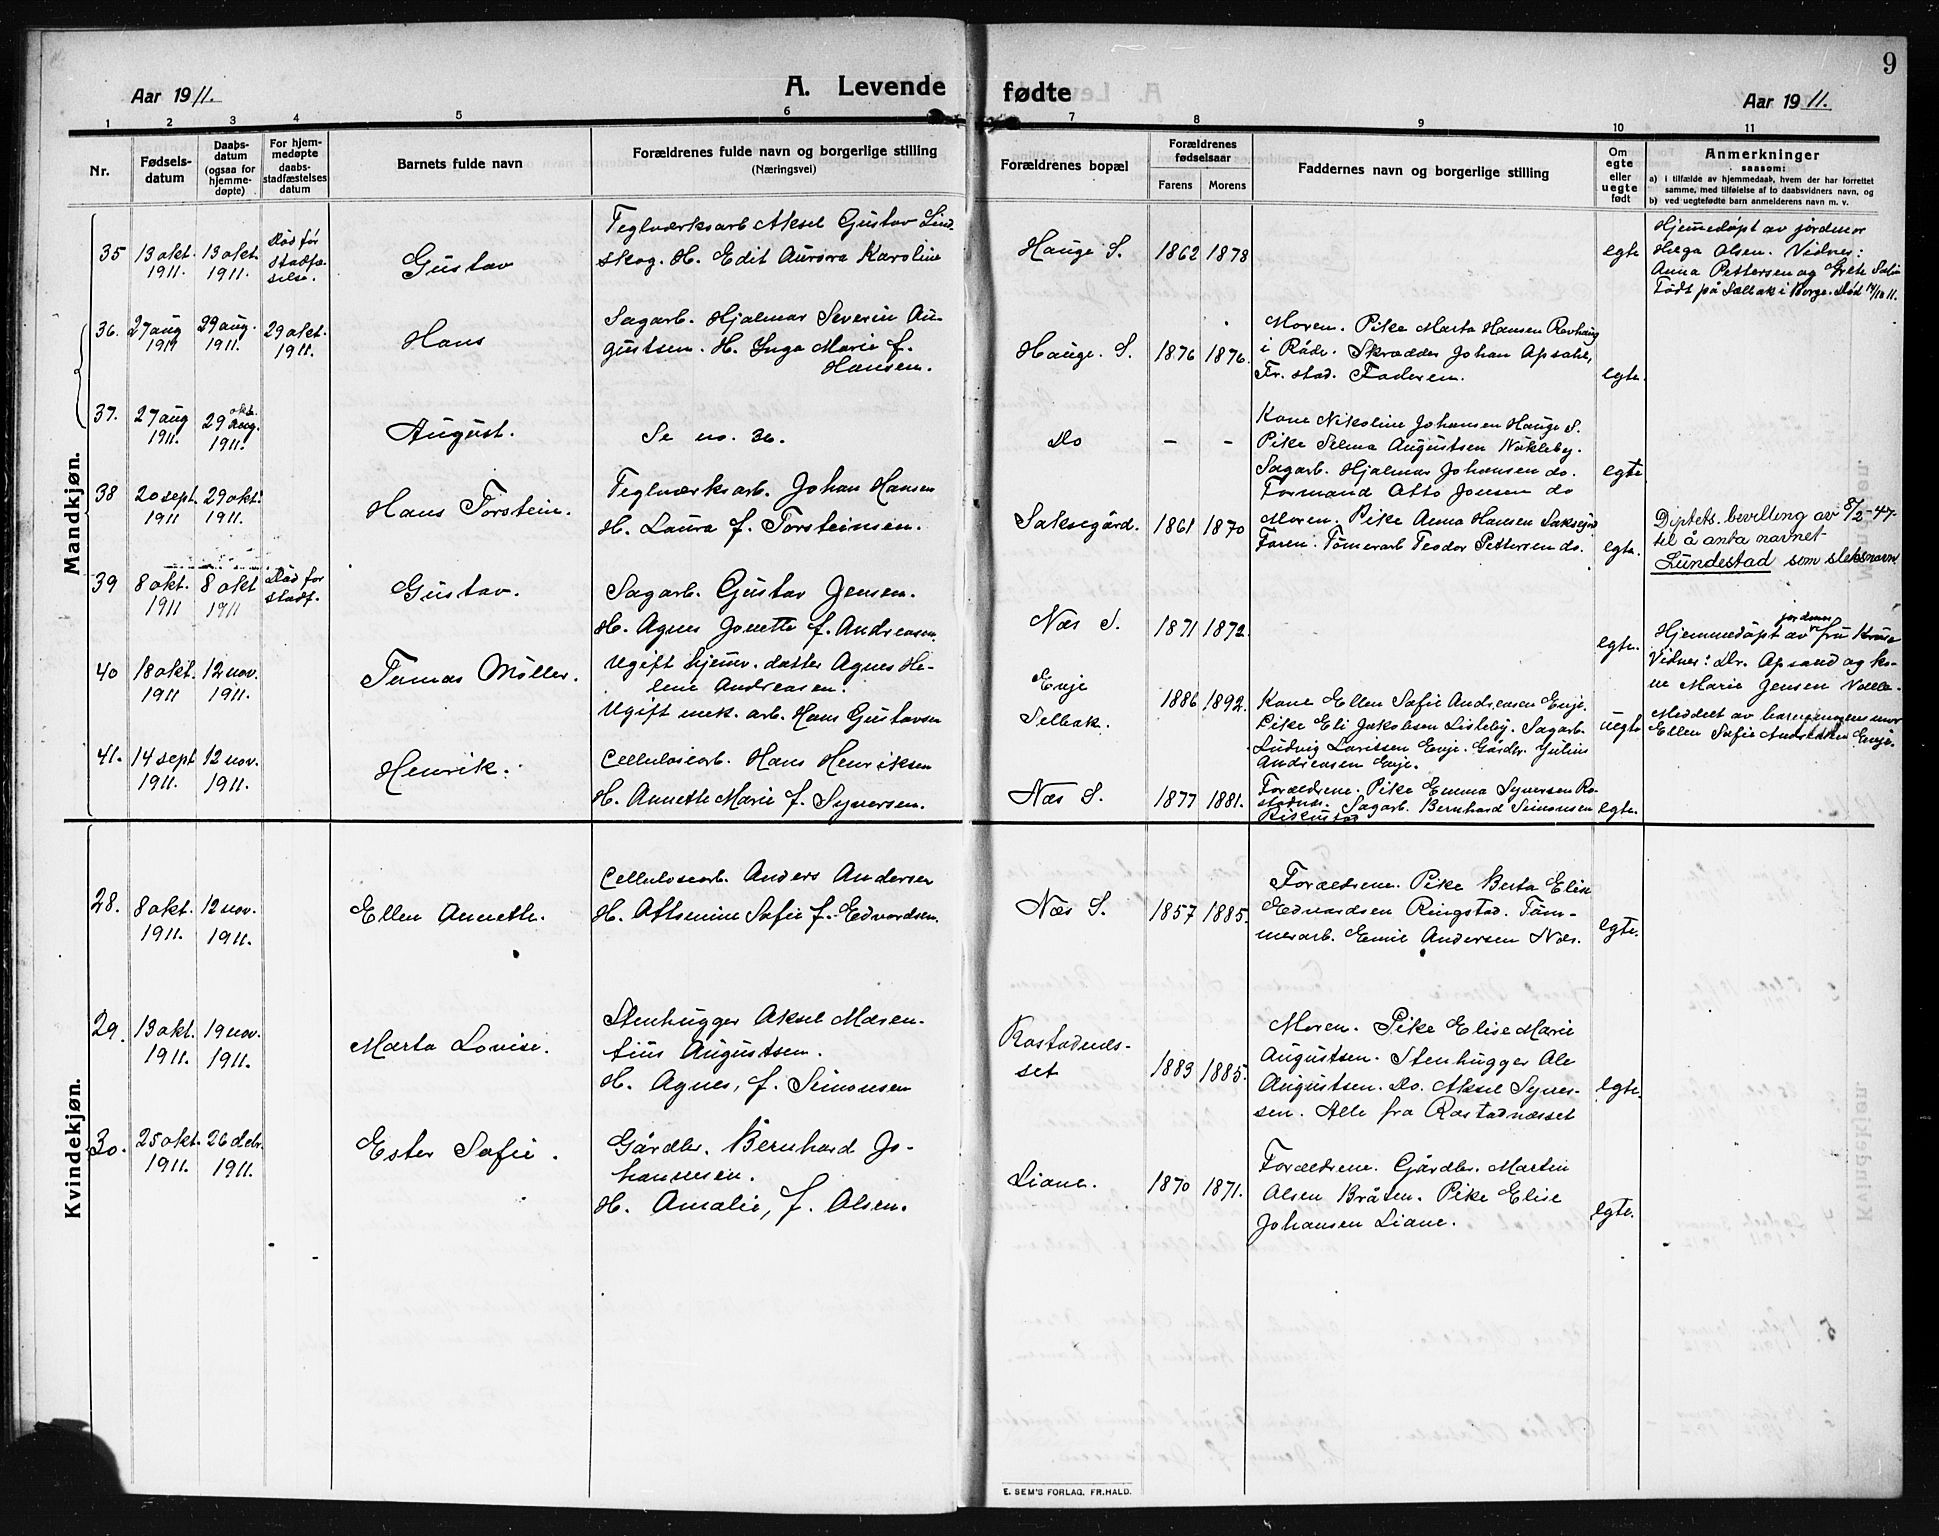 9
Aar 1911.
A. Levende
fødte
Aar 1911.
1 2 3 4 5 6 7 8 9 10 11
Nr.
Fødsels-
datum
Daabs-
datum
(ogsaa for
hjemme-
døpte)
For hjem-
medøpte
daabs-
stadfæstelses
datum
Barnets fulde navn
Forældrenes fulde navn og borgerlige stilling
(Næringsvei)
Forældrenes bopæl
Forældrenes
fødselsaar
Farens
Morens
Faddernes navn og borgerlige stilling
Om
egte
eller
uegte
født
Anmerkninger
saasom:
a) i tilfælde av hjemmedaab, hvem der har forrettet
samme, med tilføielse af to daabsvidners navn, og
b) ved uegtefødte barn anmelderens navn m. v.
Mandkjøn.
35
13 okt.
1911.
13 okt.
1911.
Død før
stadfæ-
stelse.
Gustav
Teglværksarb Aksel Gustav Lind-
skog. H. Edit Aurora Karoline
Hauge S.
1862
1878
egte
Hjemmedøpt av jordmor
Helga Olsen. Vidner:
Anna Pettersen og Grete
Født på Sælbak i Borge. Død 14/10 11.
36.
27 aug
1911
29 aug.
1911.
29 okt.
1911.
Hans
Sagarb. Hjalmar Severin Au-
gustsen. H. Inga Marie f.
Hansen.
Hauge. S.
1876
1876.
Moren. Pike Marta Hansen Rovhaug
i Råde. Skrædder Johan Apsahl,
Fr. stad. Faderen.
egte.
37.
27 aug
1911.
okt.
29 Aug.
1911.
August.
Se no. 36.
Do
–
–
Kone Nikoline Johansen Hauge S.
Pike Selma Augustsen Nøkleby.
Sagarb. Hjalmar Johansen do.
Formand Otto Jonsen do
egte
38
20 sept.
1911
29 okt.
1911.
Hans Torstein.
Teglværksarb. Johan Hansen
H. Laura f. Torsteinsen.
Saksegård.
1861
1870
Moren. Pike Anna Hansen Saksegrd
Faren. Tømerarb Teodor Pettersen do.
egte.
Dptets. bevilling av 8/2-47-
til å anta navnet
Lundestad som slektsnavn.
39
8 okt.
1911
8 okt
1911
Død før
stadf.
Gustav.
Sagarb. Gustav Jensen.
H. Agnes Jonette f. Andreasen
Næs S.
1871
1872.
egte.
jordmor
Hjemmedøpt av fru Kruse
Vidner: Dr. Apsand og ko-
ne Marie Jensen Valle.
40
18 okt.
1911
12 nov.
1911.
Tomas Møller.
Ugift hjemv. datter Agnes He-
lene Andreasen.
Ugift mek. arb. Hans Gustavsen
Evje
Selbak.
1886
1892.
Kone Ellen Sofie Andreasen Evje.
Pike Eli Jakobsen Lisleby. Sagarb.
Ludvig Laritsen Evje. Gårdbr. Julius
Andreasen Evje.
uegte
Meddelt av barnemoderens mor
Ellen Sofie Andreasen Evje.
41.
14 sept
1911.
12 nov.
1911.
Henrik.
Cellulosearb. Hans Henriksen
H. Annette Marie f. Synersen.
Næs S.
1877
1881.
Forældrene. Pike Emma Synersen Ro-
stadnes. Sagarb. Bernhard Simonsen
egte.
Kvindekjøn.
28.
8 okt.
1911.
12 nov.
1911.
Ellen Annette.
Cellulosearb. Anders Andersen
H. Attemine Sofie f. Edvardsen.
Næs S.
1857
1885.
Forældrene. Pike Berta Elise
Edvardsen Ringstad. Tøm-
merarb. Emil Andersen Næs.
egte.
29.
13 okt.
1911.
19 nov.
1911.
Marta Lovise.
Stenhugger Aksel Maren-
tius Augustsen.
H. Agnes, f. Simonsen
Rostadnes-
set
1883
1885.
Moren. Pike Elise Marie
Augustsen. Stenhugger Ole
Augustsen. Do. Aksel Syner-
sen. Alle fra Rostadnæsset
egte.
30.
25 okt.
1911.
26 debr.
1911.
Ester Sofie.
Gårdbr. Bernhard Jo-
hannesen.
H. Amalie, f. Olsen.
Liane.
1870
1871.
Forældrene. Gårdbr. Martin
Olsen Bråten. Pike Elise
Johansen Liane.
egte.
E. SEM'S FORLAG, FR.HALD.